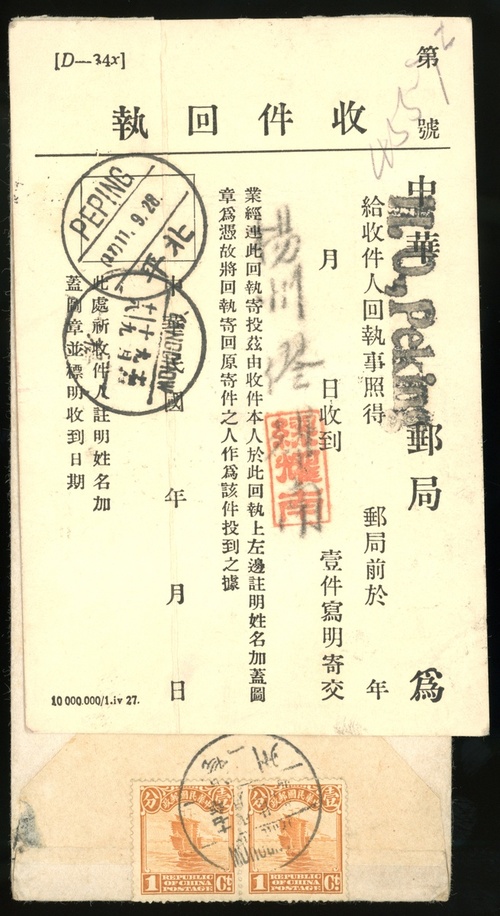 [D—34x]
第
號
收件回執
中華 郵局 爲
H.O, Peking
給收件人回執事照得 郵局前於 年
月 日收到 壹件寫明寄交
業經連此回執寄投茲由收件本人於此回執上左邊註明姓名加蓋圖
章爲憑故將回執寄回原寄件之人作爲該件投到之據
中華民國 年 月 日
此處所收件人註明姓名加
蓋圖章並標明收到日期
PEPING
(17)11.9.28.
北平
10 000.000/1.iv 27.
分 中華民國郵政 壹
1 Ct
REPUBLIC
OF CHINA
POSTAGE
分 中華民國郵政 壹
1 Ct
REPUBLIC
OF CHINA
POSTAGE